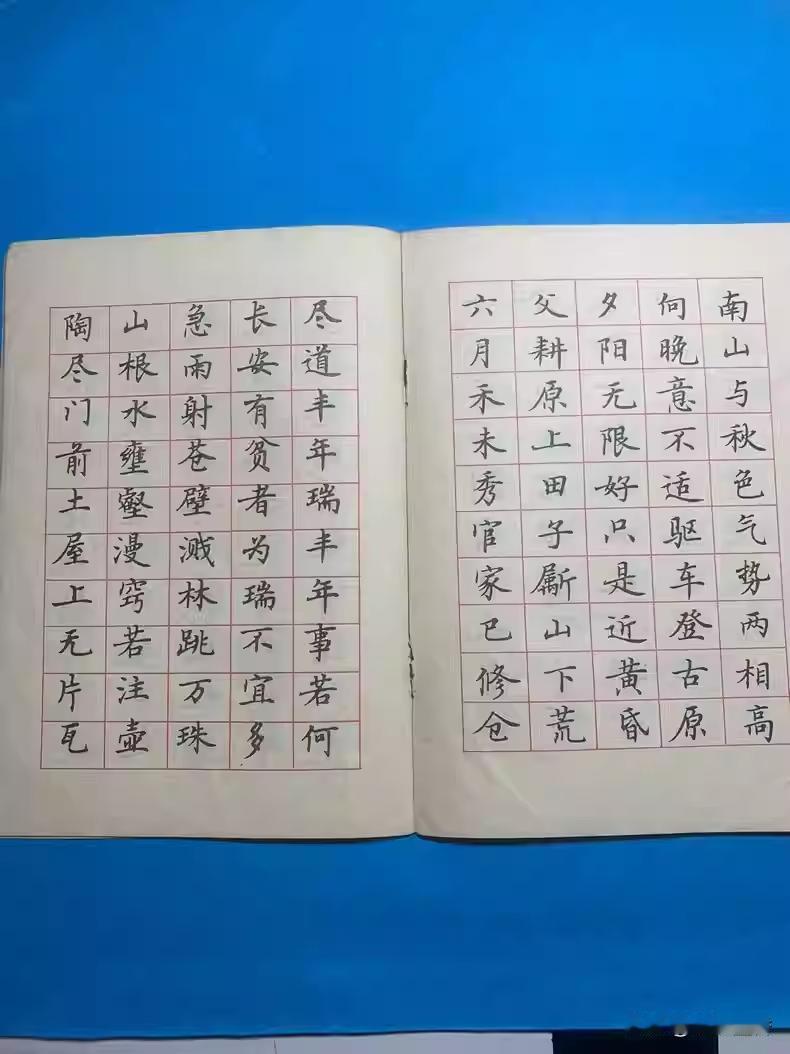 南山与秋色气势两相高
向晚意不适驱车登古原
夕阳无限好只是近黄昏
父耕原上田子斸山下荒
六月禾未秀官家已修仓
尽道丰年瑞丰年事若何
长安有贫者为瑞不宜多
急雨射苍壁溅林跳万珠
山根水壅壑漫窍若注壶
陶尽门前土屋上无片瓦